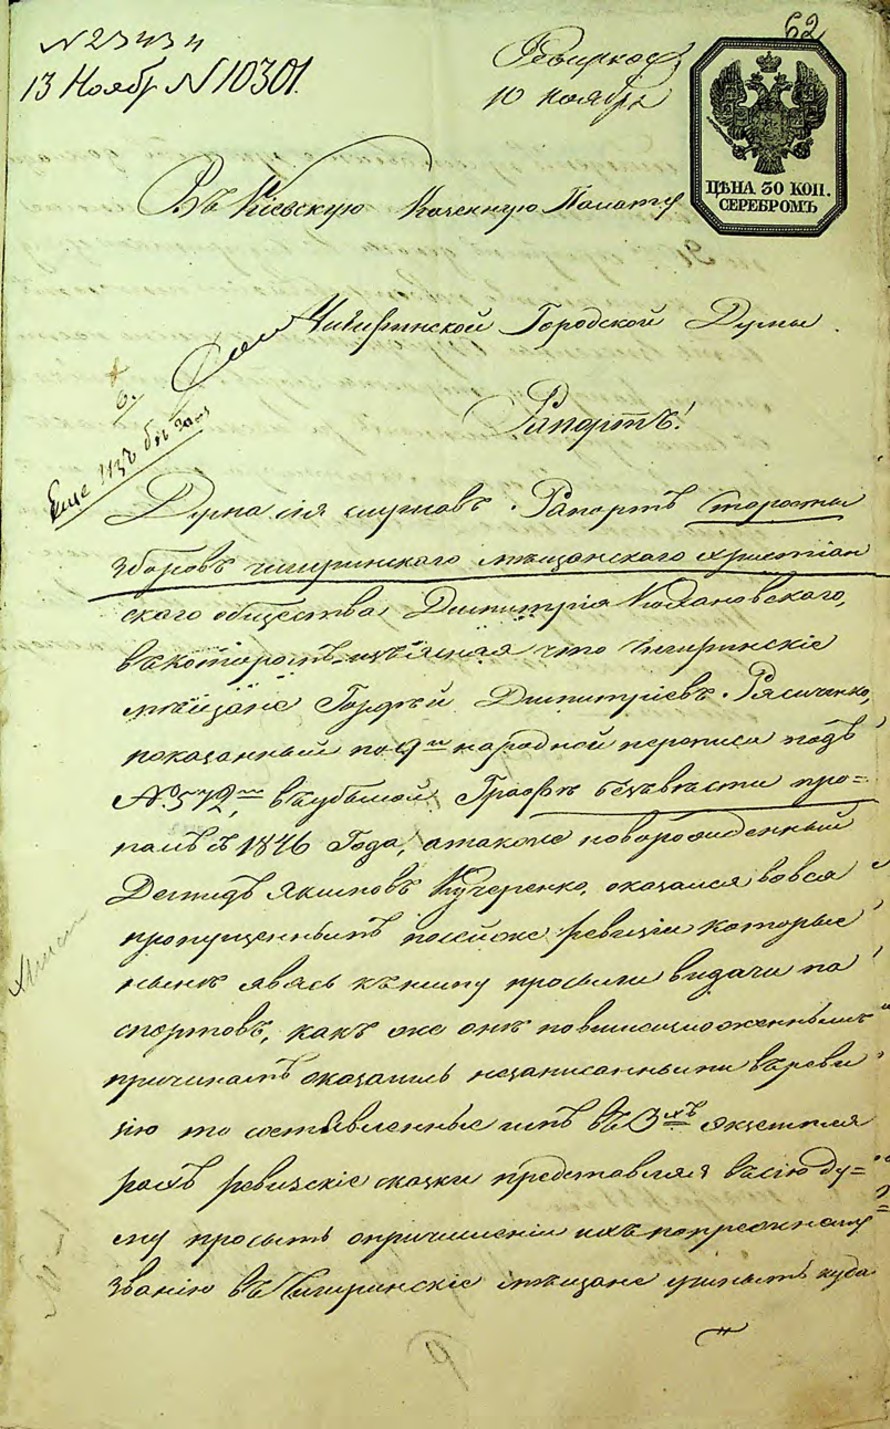 62
N 23434
13 Ноябр N 10301.
10 ноября
ЦѢНА 30 КОП.
СЕРЕБРОМЪ
Въ Кіевскую Казенную Палату
Чигиринской Городской Думы
Рапортъ!
Дума сія слушавъ Рапортъ Старосты
зборовъ чигиринскаго мѣщанского христіан
ского общества Димитрія
въ которомъ что Чигиринскіе
мѣщане Гордѣй Димитріевъ Рясиченко,
показанный по 9й народной переписи подъ
№ 572м, въ убылой Графѣ безъвѣсти про=
палъ съ 1846 Года, а также новорожденный
Демидъ Якимовъ Кучеренко, оказался вовся
пропущеннымъ по сей же ревизіи которые
нынѣ явясь къ нему просили видачи па
спортовъ, какъ же онѣ по вишеизложеннымъ
причинамъ оказались незаписанными въ реви
зію то составленные имъ въ 3хъ экземпля
рахъ ревизскіе сказки представляя въ сію Ду=
му проситъ опричисленіи ихъ по прежнему
званію въ Чигиринскіе мѣщане учинить куда